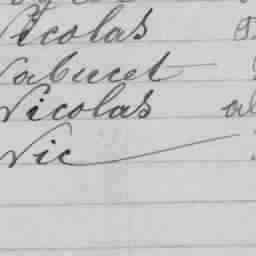 Nicolas
Nabucet
Nicolas
Nic